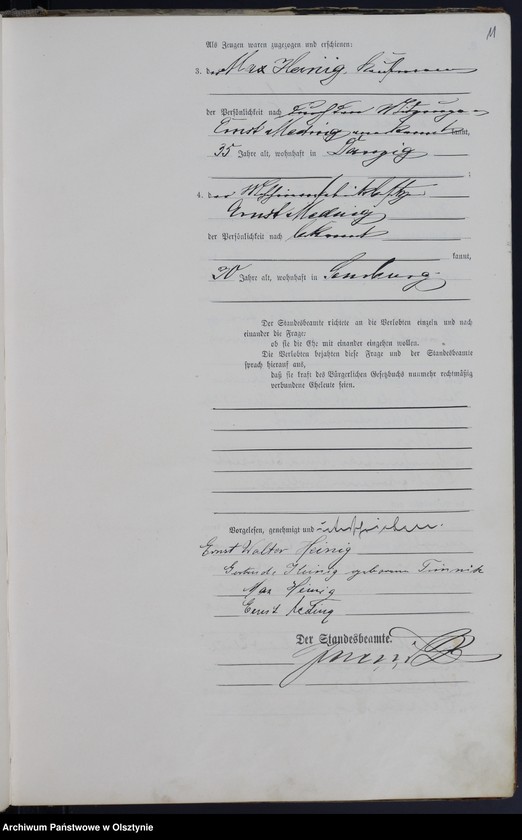 11
Als Zeugen waren zugezogen und erschienen:
3. der Max Heinig, Kaufmann
der Persönlichkeit nach durch den
Ernst Meding kannt,
35 Jahre alt, wohnhaft in Danzig
;
4. der
Ernst Meding
der Persönlichkeit nach bekannt
kannt,
Jahre alt, wohnhaft in Sensburg.
Der Standesbeamte richtete an die Verlobten einzeln und nach
einander die Frage:
ob sie die Ehe mit einander eingehen wollen.
Die Verlobten bejahten diese Frage und der Standesbeamte
sprach hierauf aus,
daß sie kraft des Bürgerlichen Gesetzbuchs nunmehr rechtmäßig
verbundene Eheleute seien.
Vorgelesen, genehmigt und unterschrieben.
Ernst Walter Heinig
Gertrude Heinig geborene Timnik
Max Heinig
Ernst Meding
Der Standesbeamte.
Archiwum Państwowe w Olsztynie